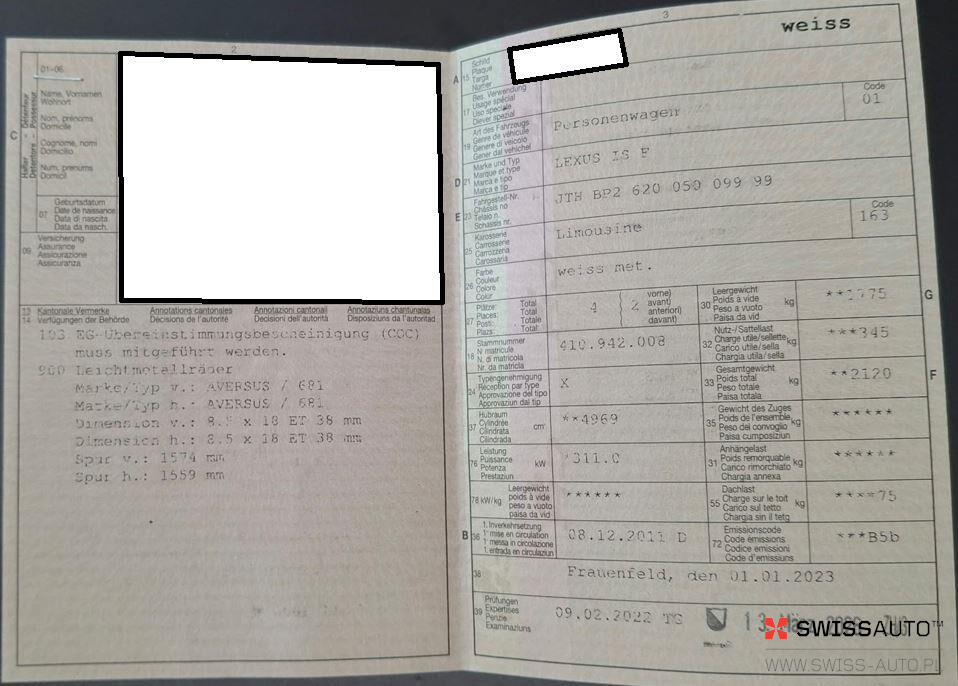 2
01-06
Halter
Détenteur
Detentore
Possessur
C
Name, Vornamen
Wohnort
Nom, prénoms
Domicile
Cognome, nomi
Domicilio
Num, prenums
Domicil
07
Geburtsdatum
Date de naissance
Data di nascita
Data da nasch.
09
Versicherung
Assurance
Assicurazione
Assicuranza
13 Kantonale Vermerke Annotations cantonales Annotazioni cantonali Annotaziuns chantunalas
14 Verfügungen der Behörde Décisions de l'autorité Decisioni dell'autorità Disposiziuns da l'autoritad
103 EG-Übereinstimmungsbescheinigung (COC)
muss mitgeführt werden.
900 Leichtmetallräder
Marke/Typ v.: AVERSUS / 681
Marke/Typ h.: AVERSUS / 681
Dimension v.: 8.5 x 18 ET 38 mm
Dimension h.: 8.5 x 18 ET 38 mm
Spur v.: 1574 mm
Spur h.: 1559 mm
3
weiss
A 15
Schild
Plaque
Targa
Numer
17
Bes. Verwendung
Usage spécial
Uso speciale
Diever spezial
19
Art des Fahrzeugs
Genre de véhicule
Genere di veicolo
Gener dal vehichel
Personenwagen
Code
01
D 21
Marke und Typ
Marque et type
Marca e tipo
Marca e tip
LEXUS IS F
E 23
Fahrgestell-Nr.
Châssis no
Telaio n.
Schassis nr.
JTH BP2 620 050 099 99
25
Karosserie
Carrosserie
Carrozzeria
Carossaria
Limousine
Code
163
26
Farbe
Couleur
Colore
Colur
weiss met.
27
Plätze: Total
Places: Totale
Posti: Totale
Plazs: Total:
4 ( 2 vorne)
avant)
anteriori)
davant)
30
Leergewicht
Poids à vide
Peso a vuoto
Paisa da vid
kg
**1775
G
18
Stammnummer
N matricule
N. di matricola
Nr. da matricla
410.942.008
32
Nutz-/Sattellast
Charge utile/sellette
Carico utile/sella
Chargia utila/sella
kg
***345
24
Typengenehmigung
Réception par type
Approvazione del tipo
Approvaziun dal tip
X
33
Gesamtgewicht
Poids total
Peso totale
Paisa totala
kg
**2120
F
37
Hubraum
Cylindrée
Cilindrata
Cilindrada
cm³
**4969
35
Gewicht des Zuges
Poids de l'ensemble
Peso del convoglio
Paisa cumposiziun
kg
******
76
Leistung
Puissance
Potenza
Prestaziun
kW
*311.0
31
Anhängelast
Poids remorquable
Carico rimorchiato
Chargia annexa
kg
******
78 kW/kg
Leergewicht
poids à vide
peso a vuoto
paisa da vid
******
55
Dachlast
Charge sur le toit
Carico sul tetto
Chargia sin il tetg
kg
****75
B 36
1. Inverkehrsetzung
1ʳᵉ mise en circulation
1ᵃ messa in circolazione
1. entrada en circulaziun
08.12.2011 D
72
Emissionscode
Code émissions
Codice emissioni
Code d'emissiuns
***B5b
38
Frauenfeld, den 01.01.2023
39
Prüfungen
Expertises
Perizie
Examinaziuns
09.02.2022 TG
13. März
SWISSAUTO™
WWW.SWISS-AUTO.PL